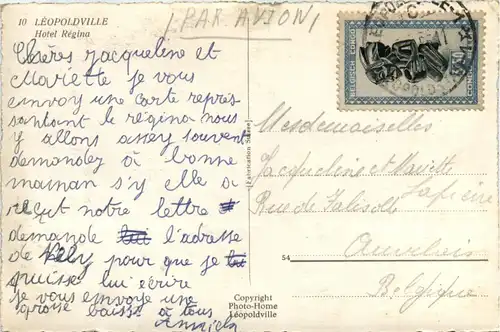 10 LÉOPOLDVILLE
Hotel Régina
(PAR AVION)
Chères Jacqueline et
Mariette je vous
envoy une carte repré
sentant le régina nous
y allons assez souvent
demandez à bonne
maman s'y elle a
reçut notre lettre
demande l'adresse
de Kely pour que je
puisse lui écrire
je vous envoye une
grosse baisse à tous
BELGISCH CONGO
Mesdemoiselles
Jacqueline et Mariette
Rue de Falisolle
Auvelais
Belgique
54
Copyright
Photo-Home
Léopoldville